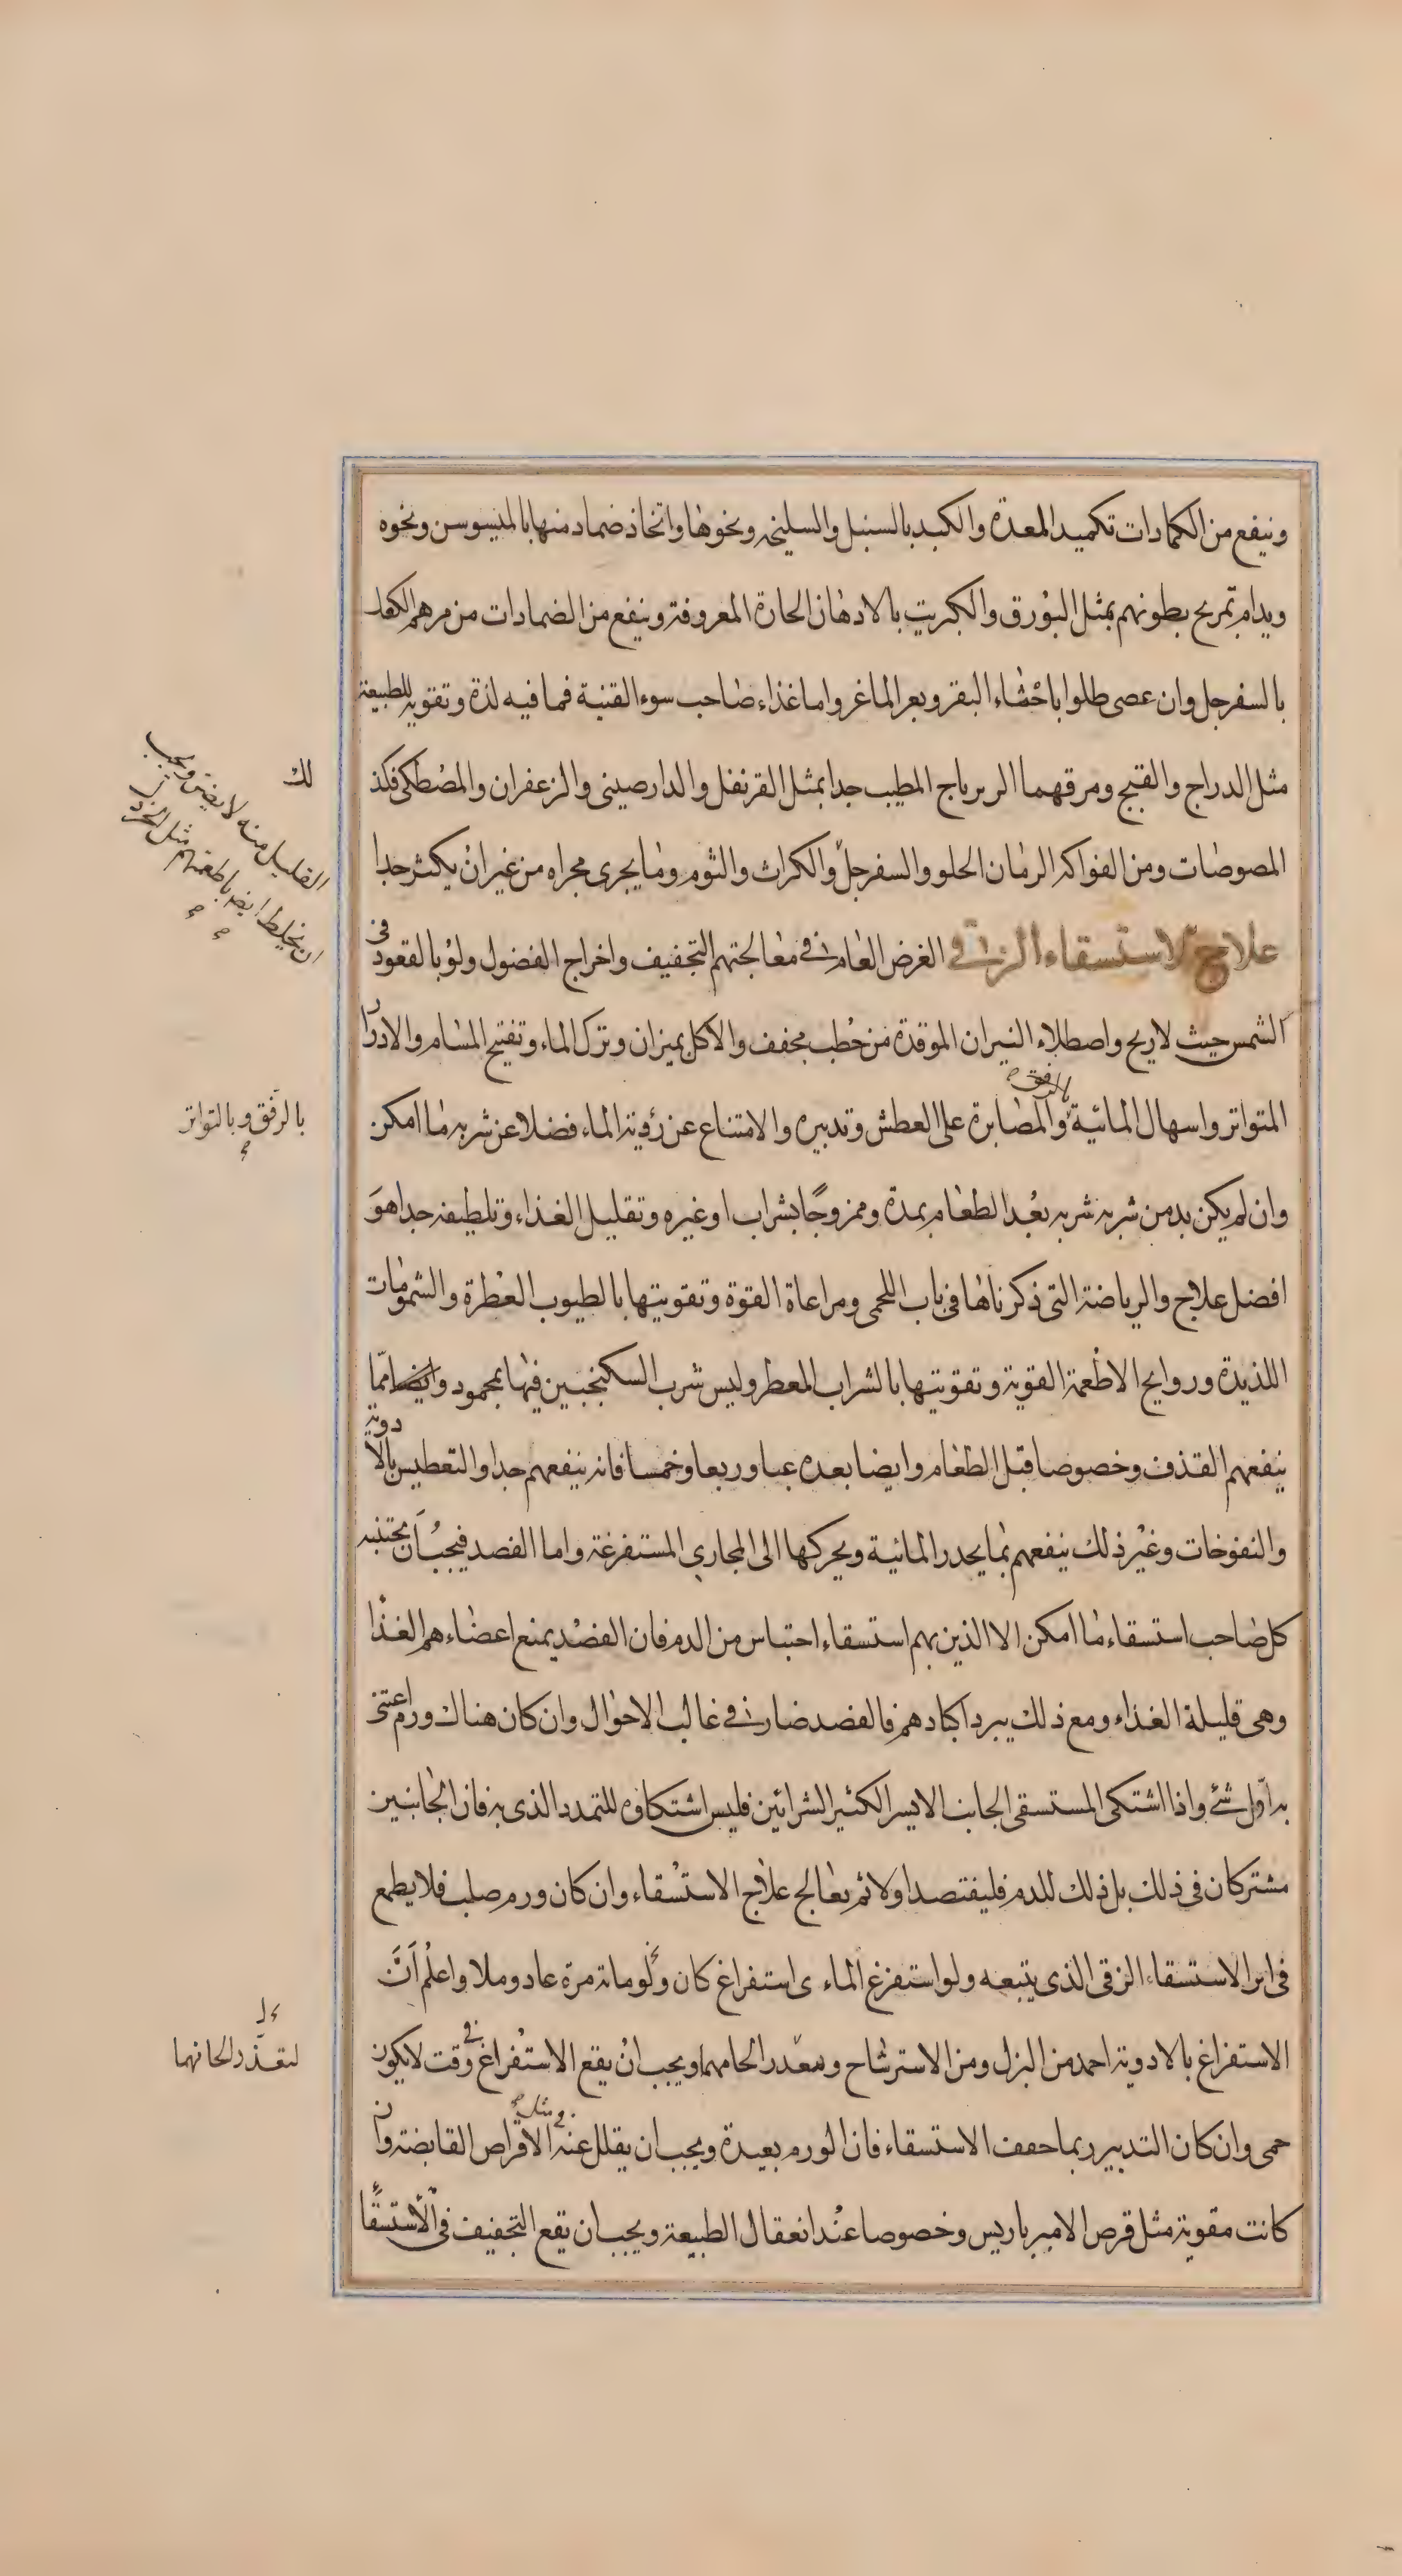 وينفع من الكمادات تكميد المعدة والكبد بالسنبل والسليخه ونحوها واتخاذ ضماد منها بالميسوسن ونحوه
ويدام تمريخ بطونهم بمثل البورق والكبريت بالادهان الحارة المعروفة وينفع من الضمادات من مرهم الكعك
بالسفرجل وان عصى طلوا باخثاء البقر وبعر الماعز واما غذاء صاحب سوء القنية فما فيه لذة وتقوية للطبيعة
مثل الدراج والقبج ومرقهما الزيرباج المطيب جدا بمثل القرنفل والدارصينى والزعفران والمصطكى فكذ
لك
المصوصات ومن الفواكه الرمان الحلو والسفرجل والكراث والثوم وما يجرى مجراه من غير ان يكثر جدا
القليل منه لا يضر ويجب
ان يخلط ايضا باطعمتهم مثل الخردل
علاج الاستسقاء الزقى الغرض العام فى معالجتهم التجفيف واخراج الفضول ولو بالقعود فى
الشمس حيث لا ريح واصطلاء النيران الموقدة من حطب مجفف والاكل بميزان وترك الماء وتفتيح المسام والادرار
المتواتر واسهال المائية بالرفق والمصابرة على العطش وتدبيره والامتناع عن رؤية الماء فضلا عن شربه ما امكن
بالرفق وبالتواتر
وان لم يكن بد من شربه شربه بعد الطعام بمدة وممزوجًا بشراب او غيره وتقليل الغذاء وتلطيفه جدا هو
افضل علاج والرياضة التى ذكرناها فى باب اللحمى ومراعاة القوة وتقويتها بالطيوب العطرة والشمومات
اللذيذة وروايح الاطعمة القوية وتقويتها بالشراب المعطر وليس شرب السكنجبين فيها بمحمود وايضا مما
ينفعهم القذف وخصوصا قبل الطعام وايضا بعده غبا وربعا وخمسا فانه ينفعهم جدا والتعطيس بالادوية
والنفوخات وغير ذلك ينفعهم بما يحدر المائية ويحركها الى المجارى المستفرغة واما الفصد فيجب ان يجتنبه
كل صاحب استسقاء ما امكن الا الذين بهم استسقاء احتباس من الدم فان الفصد يمنع اعضاءهم الغذا
وهى قليلة الغذاء ومع ذلك يبرد اكبادهم فالفصد ضار فى غالب الاحوال وان كان هناك ورم اعتنى
به اول شئ واذا اشتكى المستسقى الجانب الايسر الكثير الشرائين فليس اشتكاؤه للتمدد الذى به فان الجانبين
مشتركان فى ذلك بل ذلك للدم فليفتصد اولا ثم يعالج علاج الاستسقاء وان كان ورم صلب فلا يطمع
فى ابرا الاستسقاء الزقى الذى يتبعه ولو استفرغ الماء اى استفراغ كان ولو مائة مرة عاد وملا واعلم ان
الاستفراغ بالادوية احمد من البزل ومن الاسترشاح وتعذر الحامهما ويجب ان يقع الاستفراغ فى وقت لا يكون
لتعذر الحامهما
حمى وان كان التدبير ربما خفف الاستسقاء فان الورم بعيدة ويجب ان يقلل عنه فى مثل الاقراص القابضة وان
كانت مقوية مثل قرص الامبرباريس وخصوصا عند انعقال الطبيعة ويجب ان يقع التجفيف فى الاستسقا